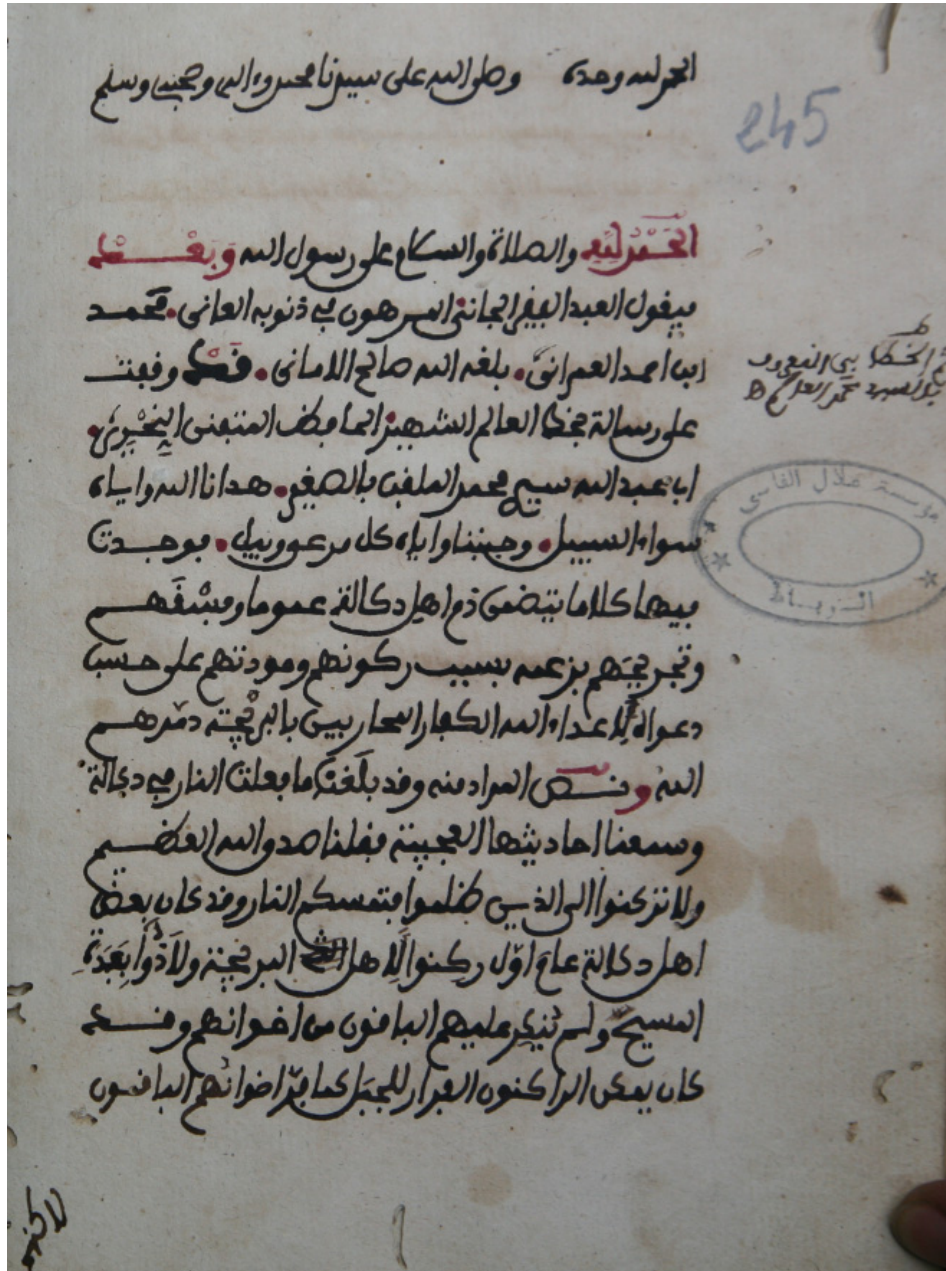 الحمد لله وحده وصلى الله على سيدنا محمد وءاله وصحبه وسلم
245
الحمد لله والصلاة والسلام على رسول الله وبعد
فيقول العبد الفقير الجانى المرهون في ذنوبه العانى. محمد
ابن احمد العمرانى. بلغه الله صالح الامانى. فقد وقفت
على رسالة بخط العالم الشهير الحافظ المتفنن النحرير.
اب عبد الله سيدي محمد الملقب بالصغير. هدانا الله واياه
سواء السبيل. وجنبنا واياه كل مرعى وبيل. فوجدت
فيها كلاما يتضمن ذم اهل دكالة عموما وفسقهم
وتجريحهم بزعمه بسبب ركونهم ومودتهم على حسب
دعواه لاعداء الله الكفار المحاربين بالبريجة دمرهم
الله ونص المراد منه وقد بلغنا ما فعلت النار في دكالة
وسمعنا احاديثها العجيبة فقلنا صدق الله العظيم
ولا تركنوا الى الذين ظلموا فتمسكم النار وقد كان بعض
اهل دكالة عام اول ركنوا لاهل البريجة ولاذوا بعبدة
المسيح ولم ينكر عليهم الباقون من اخوانهم وقد
كان بعض الراكنون الفرار للجبل كما فر اخوانهم الباقون
لاكنه
مؤسسة علال الفاسي
الربـاط